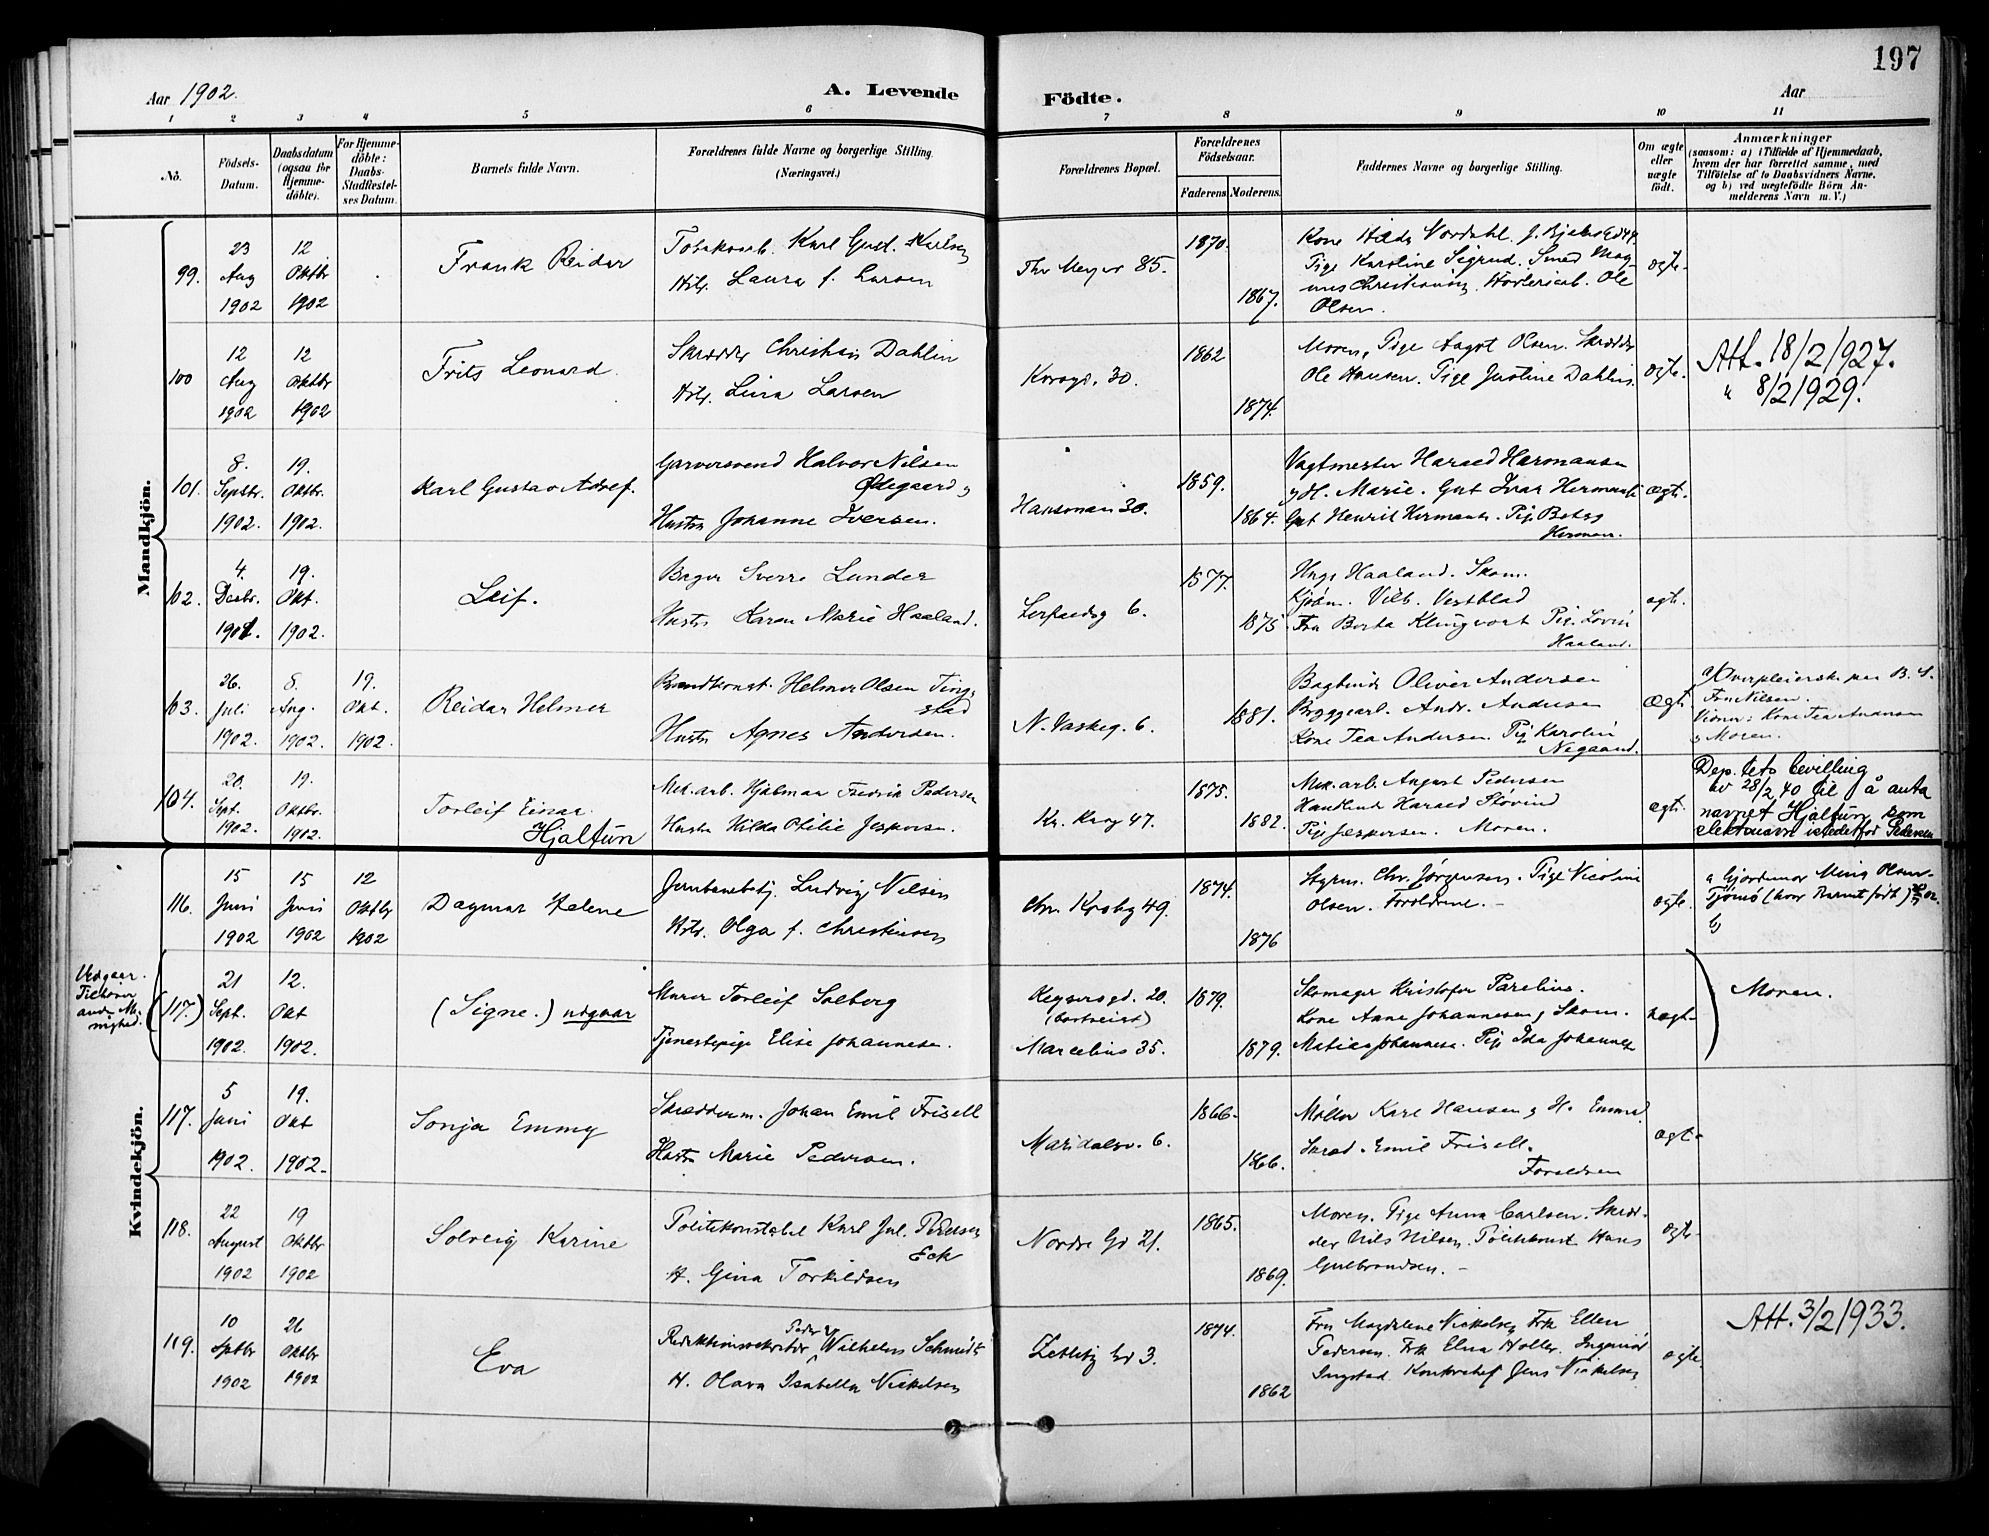 197
Aar 1902.
A. Levende
Födte.
Aar
1 2 3 4 5 6 7 8 9 10 11
No.
Födsels-Datum.
Daabsdatum (ogsaa for Hjemme-döbte).
For Hjemme-döbte: Daabs-Stadfæstel-ses Datum.
Barnets fulde Navn.
Forældrenes fulde Navne og borgerlige Stilling.
(Næringsvei.)
Forældrenes Bopæl.
Forældrenes Födselsaar.
Faderens.
Moderens.
Faddernes Navne og borgerlige Stilling.
Om ægte eller uægte födt.
Anmærkninger
(saasom: a) i Tilfælde af Hjemmedaab,
hvem der har forrettet samme, med
Tilföielse af to Daabsvidners Navne.
og b) ved uægtefödte Börn An-
melderens Navn m. V.)
Mandkjön.
99.
23 Aug 1902
12 Oktbr 1902
Frank Reidar
Karl Gust. Karlsen
Laura f. Larsen
Thv Meyer 85.
1870.
1867.
Kone Hilda Nordahl.
Pige Karoline Sigrud. Smed Mag-
nus Christiansen, Ole
Olsen.
ægte.
100
12 Aug 1902
12 Oktbr 1902
Frits Leonard.
Skrædder Christian Dahlin
Hstr. Lina Larsen
Korsgd. 30.
1862
1874.
Moren, Pige Aagot Olsen. Skrædder
Ole Hansen. Pige Justine Dahlin.
ægte.
Att. 18/2 1927.
" 8/2 1929.
101.
8. Septbr. 1902.
19. Oktbr. 1902.
Karl Gustav Adolf.
Garversvend Halvor Nilsen
Ødegaard og
Hustru Johanne Iversen.
Hansman 30.
1859.
1864.
Vagtmester Harald Hermansen
og H. Marie. Gut Ivar Hermans.
Gut Henrik Hermans. Pig.
Herman.
ægt.
102.
4. 1901.
19. Okt. 1902.
Leif.
Bager Sverre Lunder
Hustru Karen Marie Haaland.
6.
1877.
1875
Haaland. Skom.
Vilh. Vestblad
Fru Berta Klingvort Pig.
Haaland.
ægt.
103.
26. Juli 1902.
8. Aug. 1902.
19. Okt. 1902.
Reidar Helmer
Brandkonst. Helmer Olsen Ting-
stad
Hustru Agnes Andersen.
N. Vaskeg. 6.
1881.
Bogbinder Oliver Andersen
Bryggearb. Andr. Andersen
Kone Tea Andersen. Pig Karolin
ægt.
a) Overpleierske
Frøk Nilsen.
Vidner: Kone Tea Andersen
og Moren.
104.
20. Sept. 1902.
19. Oktbr. 1902.
Torleif Einar
Hjaltun
Mek. arb. Hjalmar Fredrik Pedersen
Hustru Hilda Otilie Jespersen.
Kr. Krog 47.
1875.
1882.
Mek. arb. August Pedersen
Harald Støvind
Pige Jespersen. Moren.
ægt.
Dep.tets bevilling
av 28/2 40 til å anta
navnet Hjaltun som
slektsnavn istedetfor Pedersen
Kvindekjön.
116.
15 Juni 1902
15 Juni 1902
12 Oktbr 1902
Dagmar Helene
Jernbanebetj. Ludvig Nilsen
Hstr. Olga f. Christensen
Chr. Krohg 49.
1874.
1876
Styrm. Chr. Jørgensen. Pige Nicoline
Olsen. Foreldrene.
ægte.
a Gjordemor Mina Olsen
Tjømø (hvor Barnet født)
Udgaar.
Tilhører
anden Me-
nighed.
(117.)
21 Sept. 1902.
12. Okt 1902.
(Signe.) udgaar
Murer Torleif Solberg
Tjenestepige Elise Johannesen.
Keysersgd. 20.
(bortreist)
Marcelius 35.
1879.
1879.
Skomager Kristofer Parelius.
Kone Anne Johannesen, Skom.
Matias Johannesen. Pig Ida Johannes
uægt.
Moren.
117.
5 Juni 1902.
19. Okt 1902.
Sonja Emmy
Skræderm. Johan Emil Frisell
Hustru Marie Pedersen.
Maridalsv. 6.
1866.
1866.
Møller Karl Hansen og H. Emma
Skræd. Emil Frisell.
Forældren
ægt.
118.
22 August 1902
19 Oktbr 1902
Solveig Karine
Politikonstabel Karl Jul. Pedersen
Eek
H. Gina Torkildsen
Nordre Gd 21.
1865.
1869.
Moren. Pige Anna Carlsen. Skræd-
der Nils Nilsen. Politikonst Hans
Gulbrandsen.
ægte.
119.
10 Sptbr 1902
26 Oktbr 1902
Eva
Redaktionssekretær Peder Wilhelm Schmidt
H. Olava Isabella Nickelsen
Zetlitz Gd 3.
1874.
1862
Fru Magdelene Nickelsen, Frk Ellen
Pedersen. Frk Elna Holler. Ingeniör
Ingstad Kontorchef Jens Nickelsen
ægte
Att. 3/2 1933.